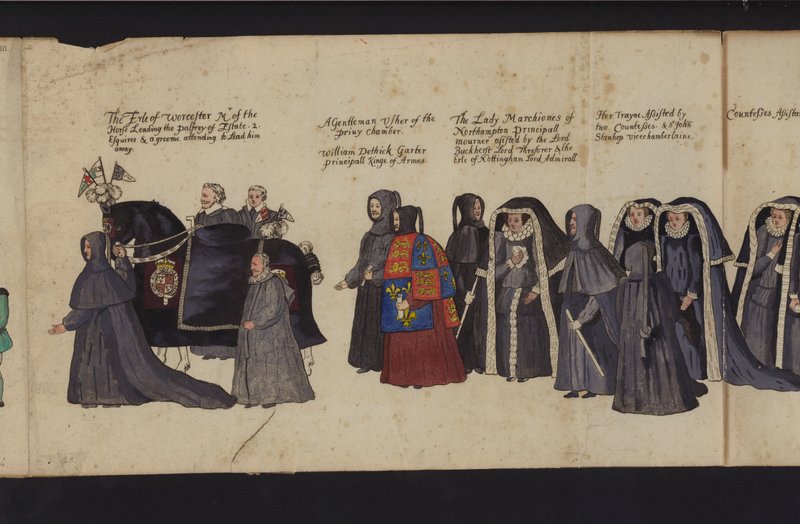 III.
The Erle of Worcester Mr. of the
Horse Leading the palfrey of Estate. 2.
Esquires & a groome attending to Lead him
away.
A Gentleman Usher of the
privy chamber.
William Dethick Garter
principall Kinge of Armes.
The Lady Marchiones of
Northampton Principall
mourner asisted by the Lord
Buckherst Lord Thresorer & the
Erle of Nottingham Lord Admirall.
Her Trayne Assisted by
two Countesses. & Sr. John
Stanhop vicechamberlaine.
Countesses Assista